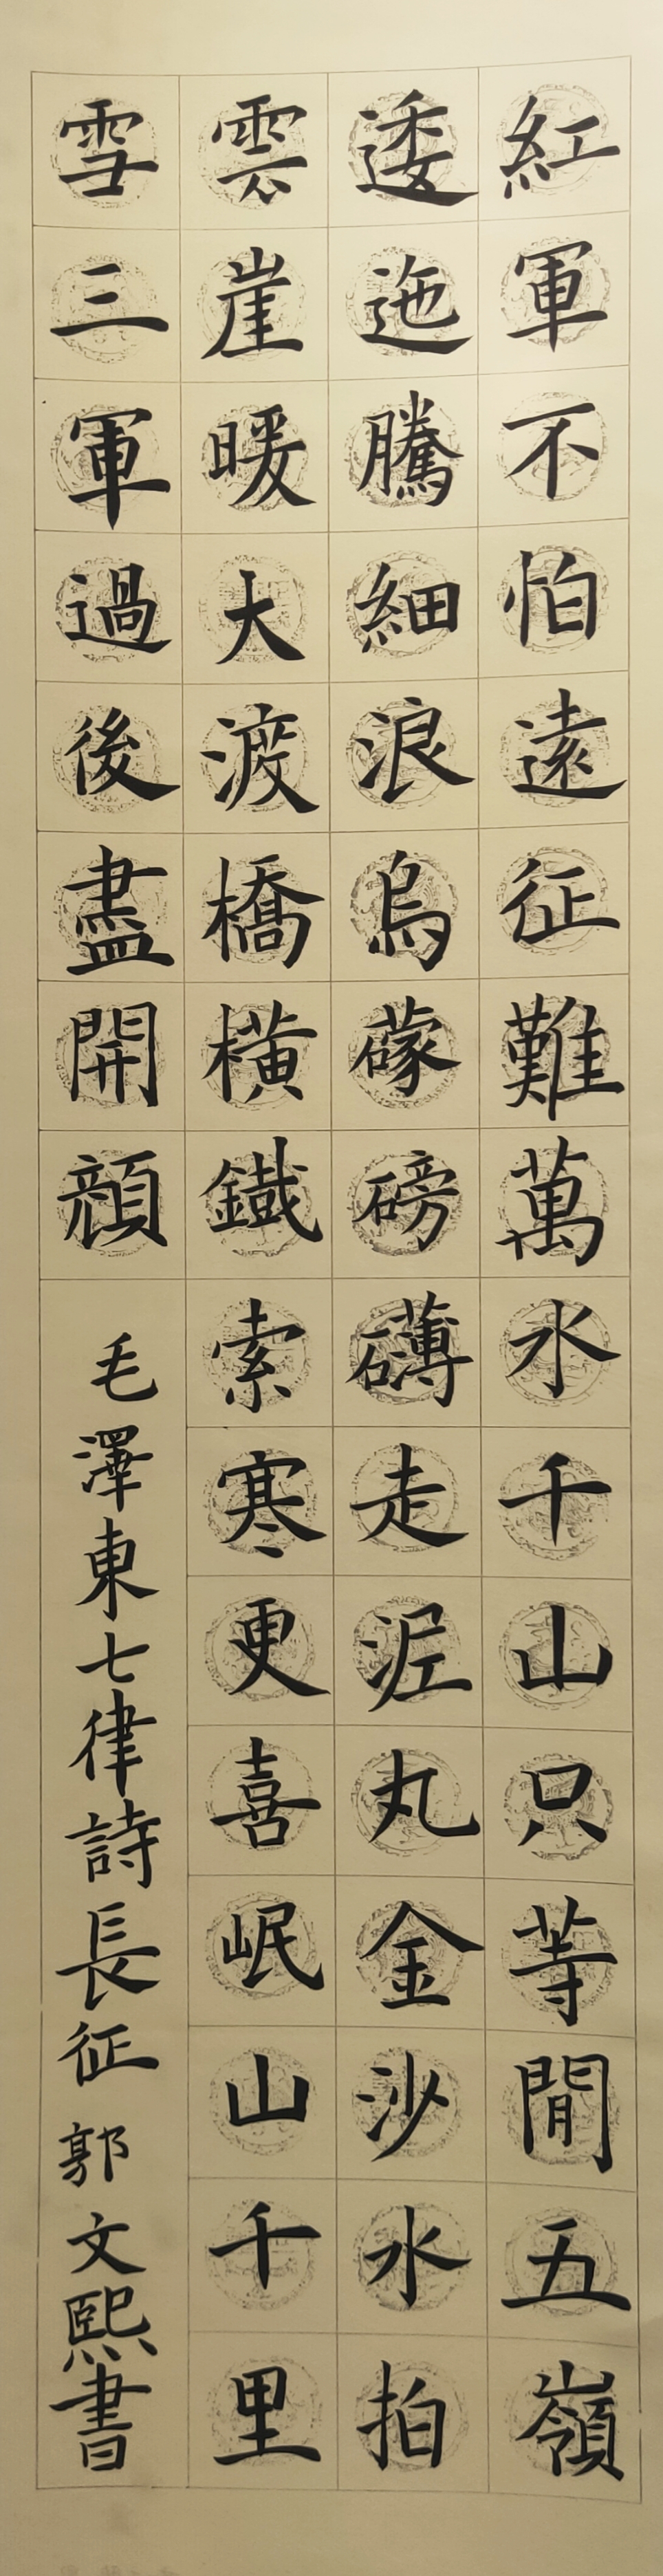 紅軍不怕遠征難萬水千山只等閒五嶺
逶迤騰細浪烏礞磅礴走泥丸金沙水拍
雲崖暖大渡橋橫鐵索寒更喜岷山千里
雪三軍過後盡開顏 毛澤東七律詩長征 郭文熙書